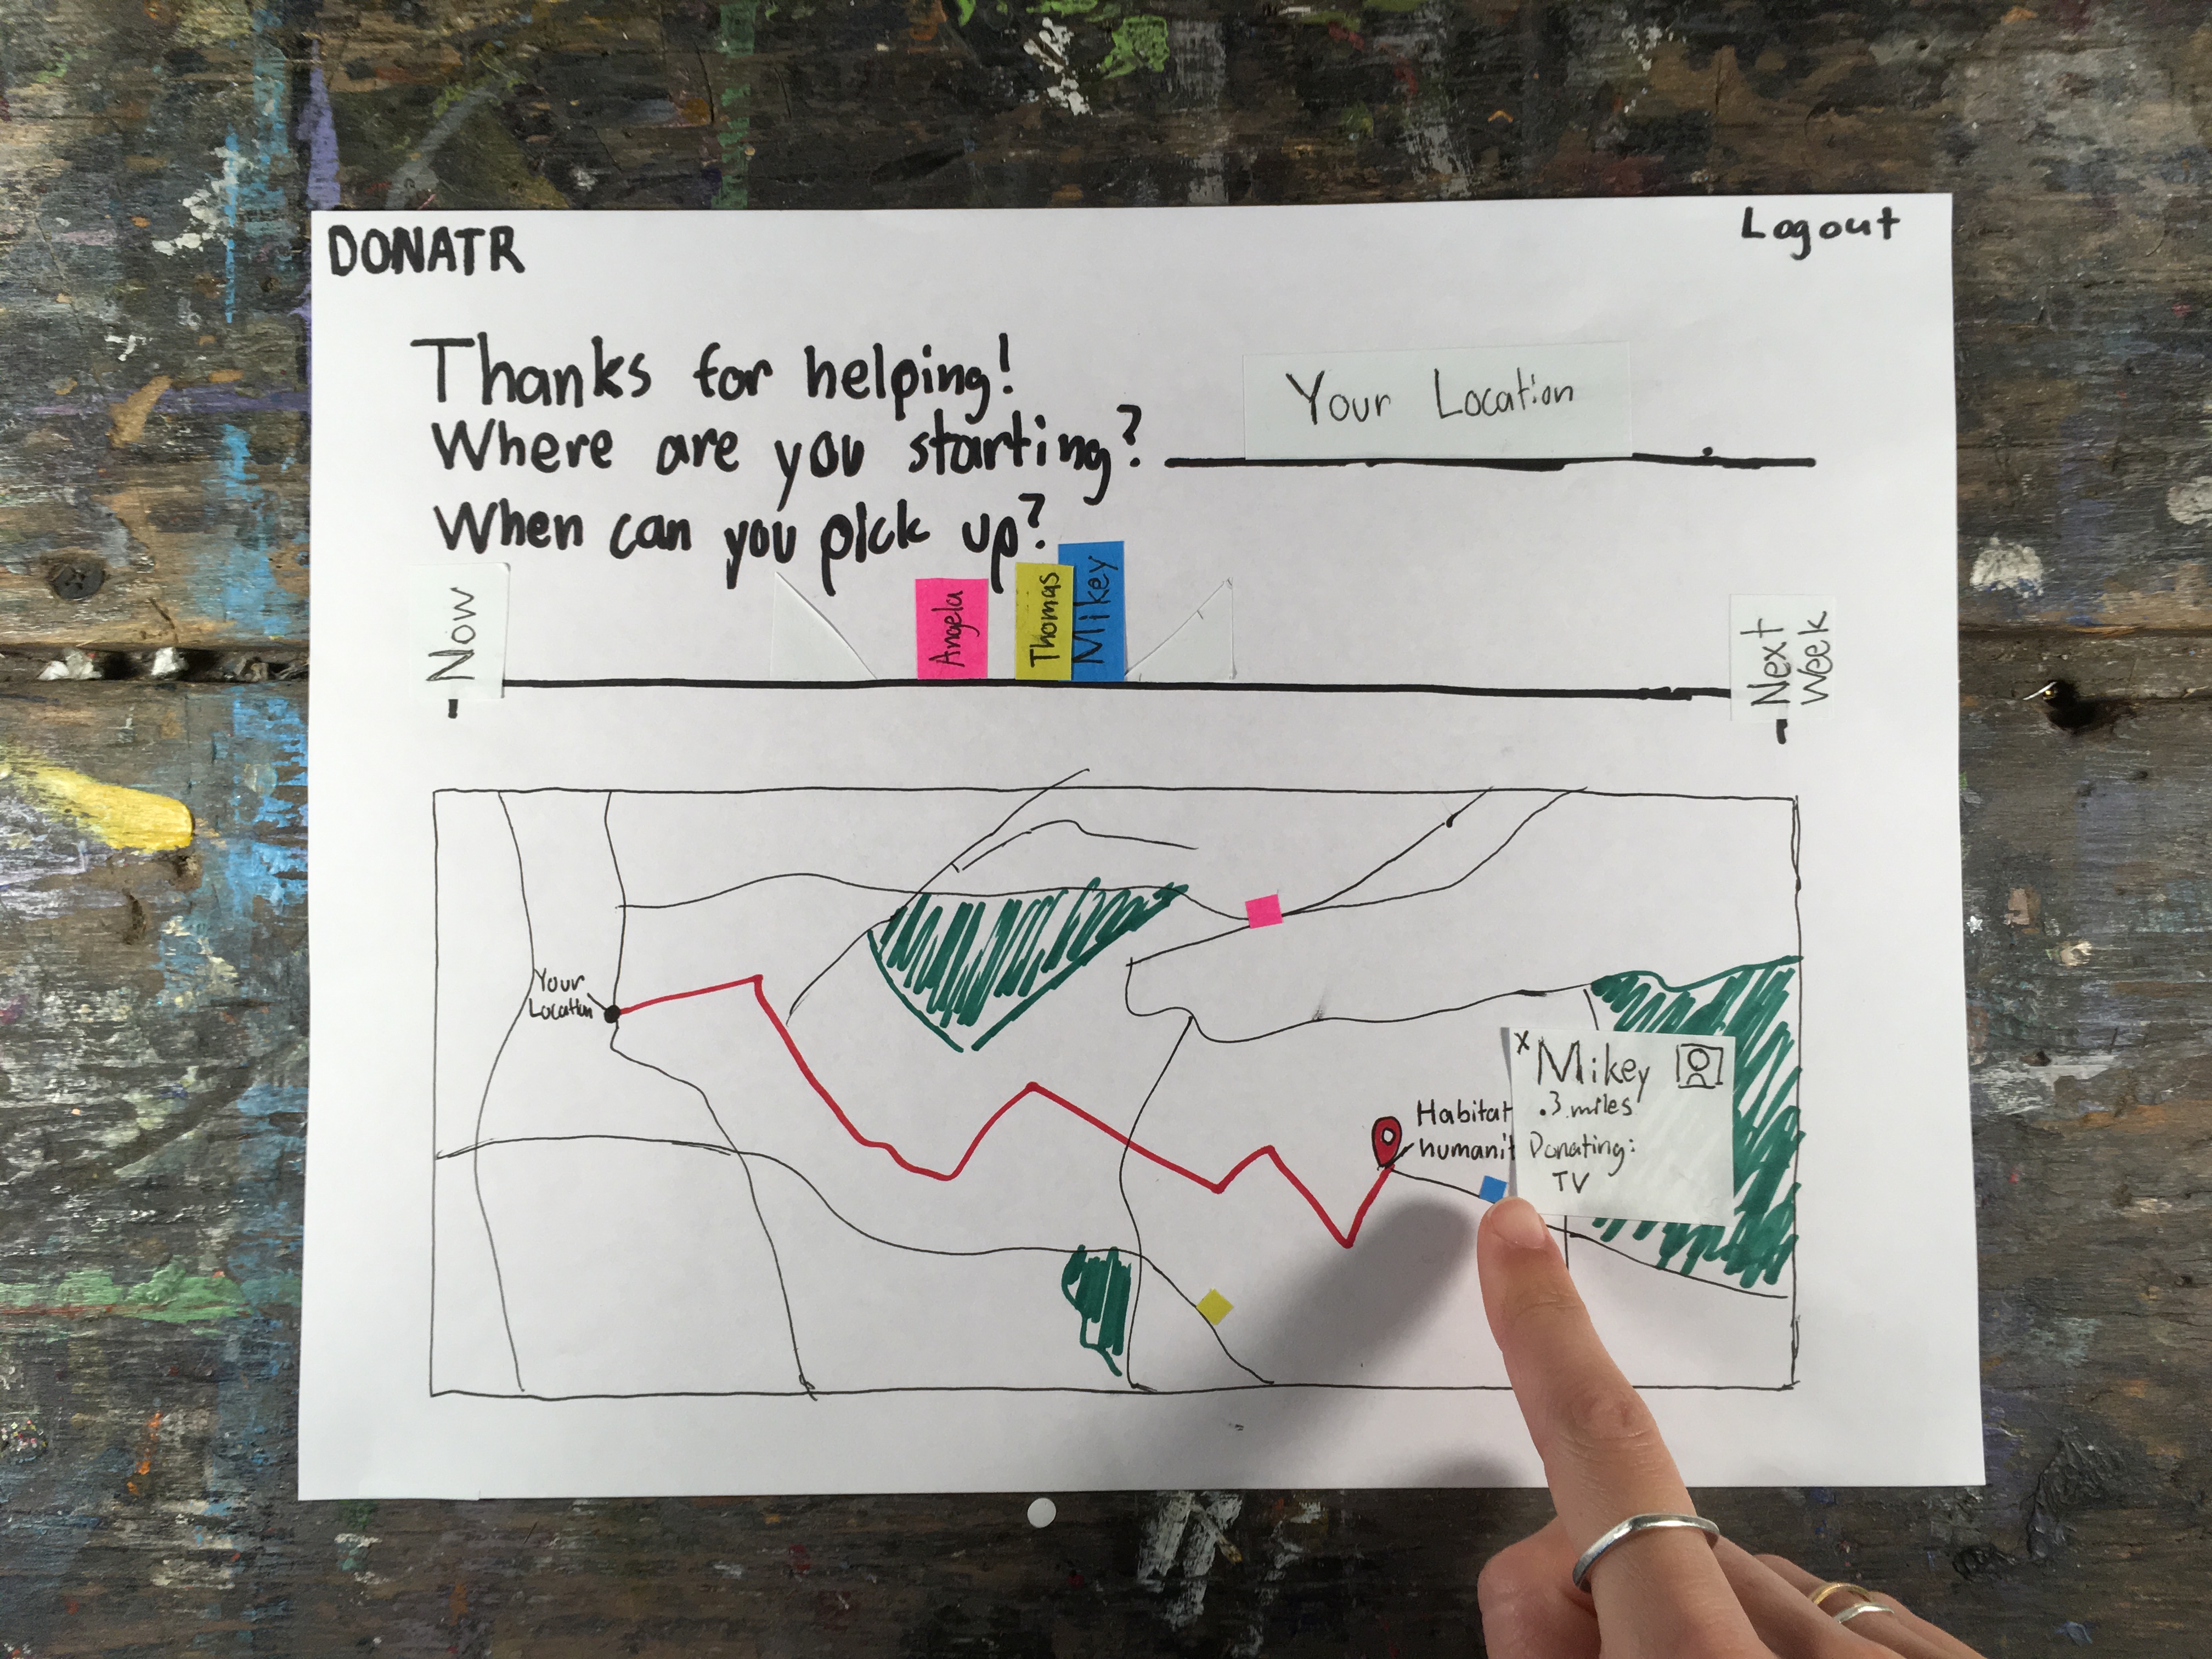 DONATR
Logout
Thanks for helping!
Where are you starting?
Your Location
When can you pick up?
Now
Angela
Thomas
Mikey
Next
Week
Your
Location
Habitat
humanit
x Mikey
.3 miles
Donating:
TV